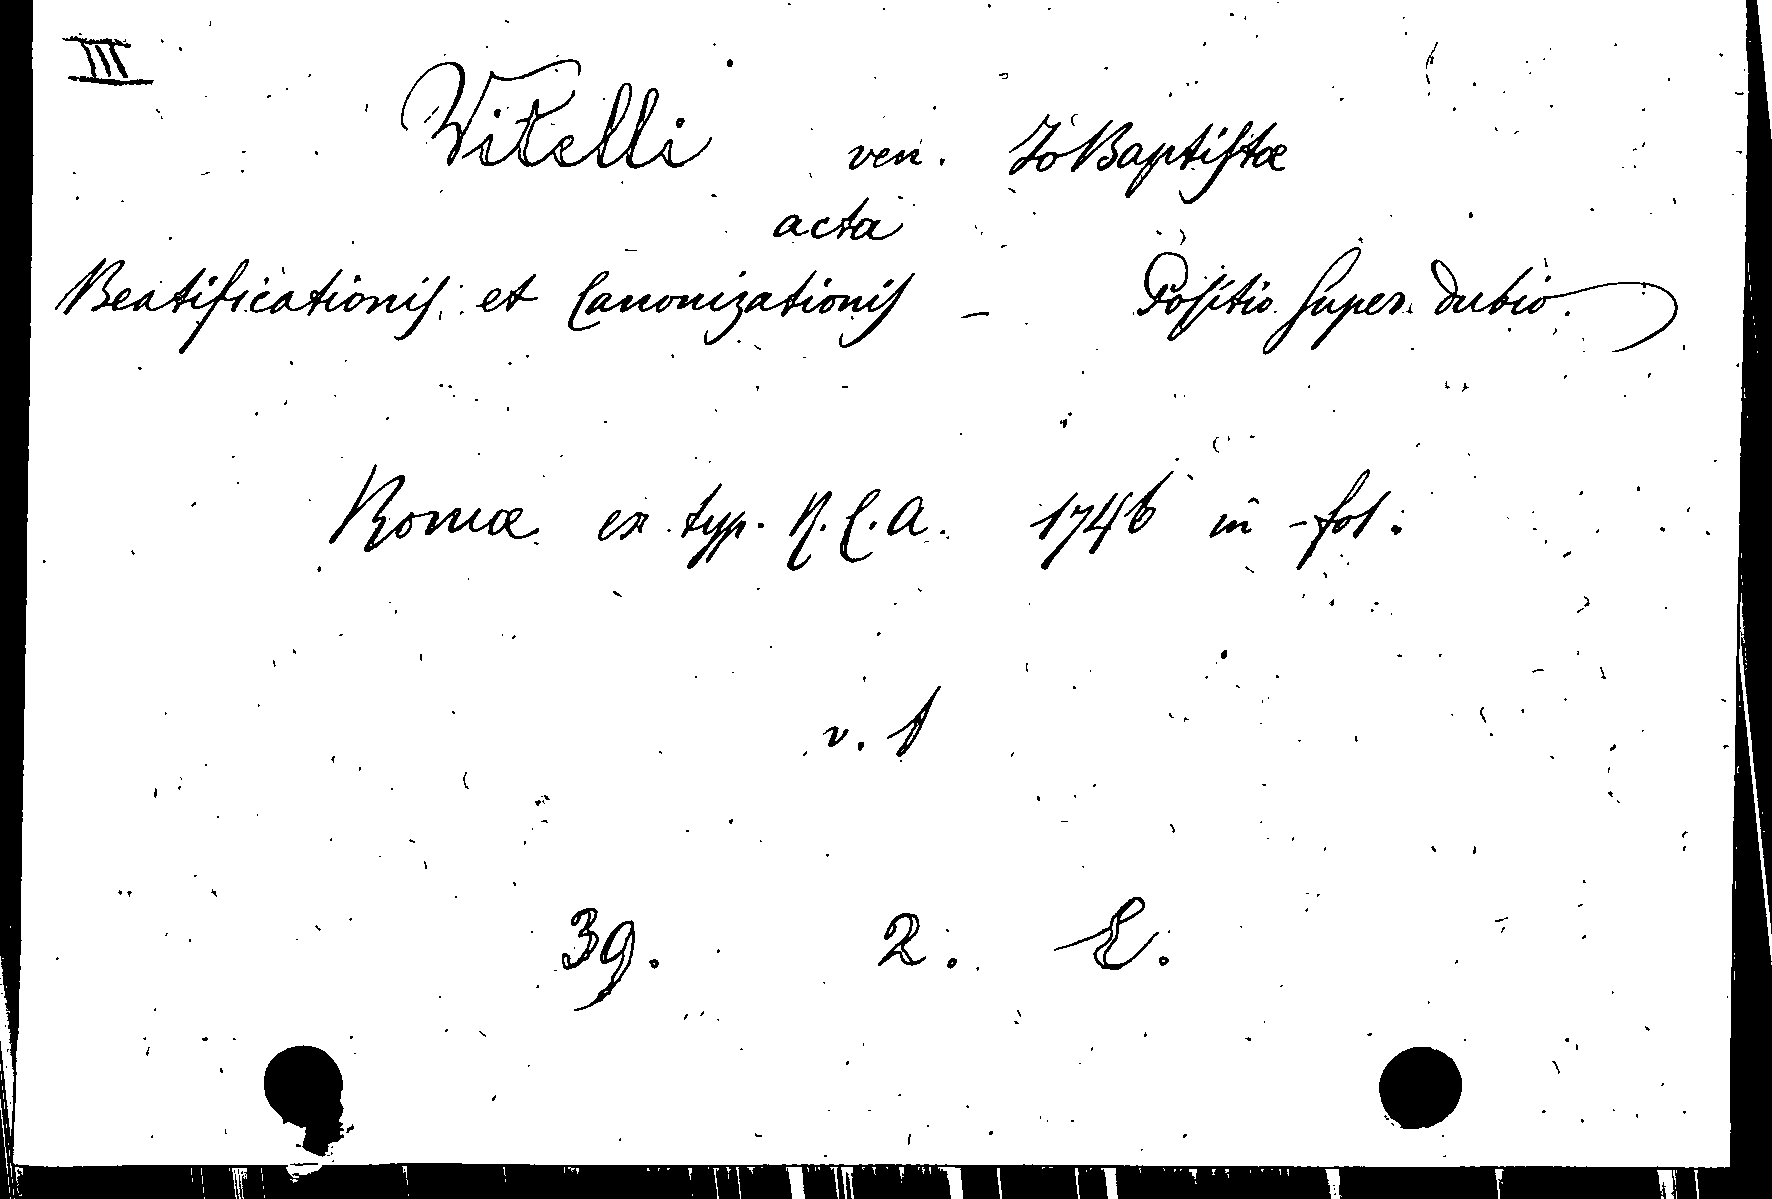 III
Vitelli ven. Jo Baptistæ
acta
Beatificationis et Canonizationis - Positio super dubio.
Romæ ex typ. R. C. A. 1746 in-fol.
v. 1
39. 2. E.